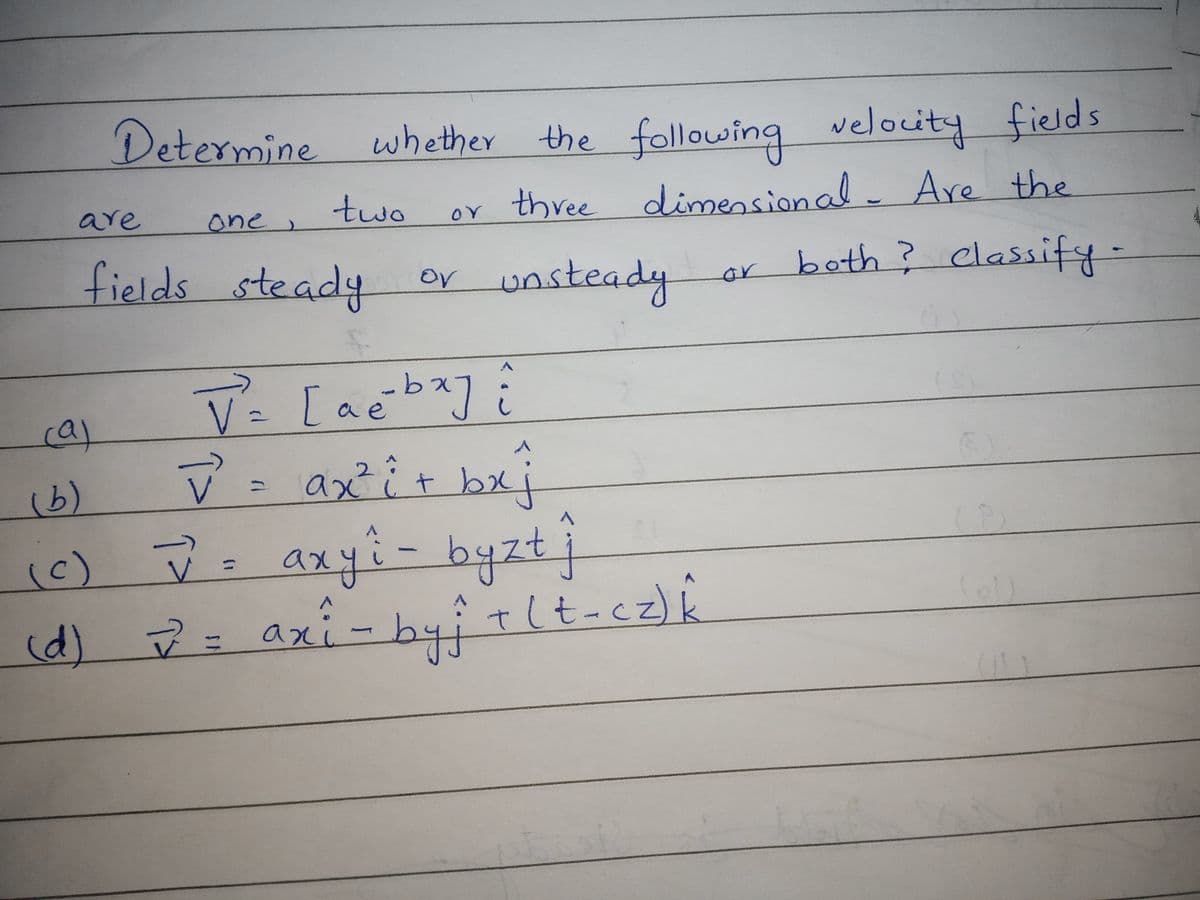 Determine whether the following velocity fields
are one, two or three dimensional - Are the
fields steady or unsteady or both ? classify -
(a) V⃗ = [ae^-bx] î
(b) V⃗ = ax² î + bx ĵ
(c) V⃗ = axy î - byzt ĵ
(d) V⃗ = ax î - by ĵ + (t-cz) k̂